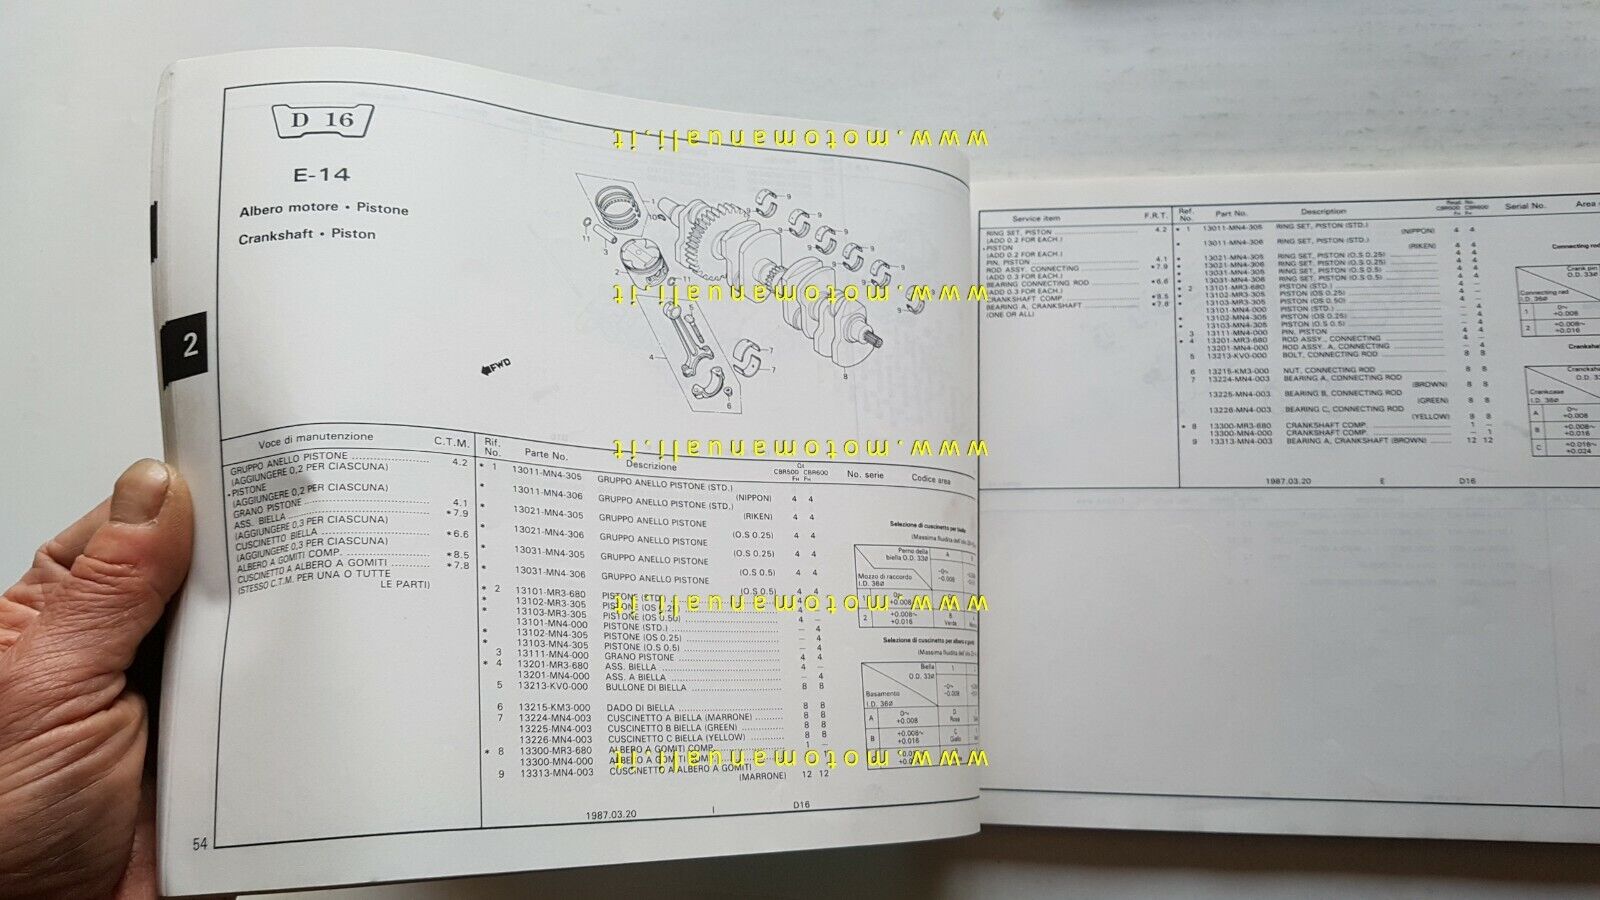 D 16
E-14
Albero motore • Pistone
Crankshaft • Piston
www.motomanuali.it
FWD
2
Voce di manutenzione C.T.M.
GRUPPO ANELLO PISTONE 4.2
(AGGIUNGERE 0,2 PER CIASCUNA)
•PISTONE
(AGGIUNGERE 0,2 PER CIASCUNA)
GRANO PISTONE 4.1
ASS. BIELLA *7.9
(AGGIUNGERE 0,3 PER CIASCUNA)
CUSCINETTO BIELLA *6.6
(AGGIUNGERE 0,3 PER CIASCUNA)
ALBERO A GOMITI COMP. *8.5
CUSCINETTO A ALBERO A GOMITI *7.8
(STESSO C.T.M. PER UNA O TUTTE
LE PARTI)
Rif. No. Parte No. Descrizione CBR500 CBR600 No. serie Codice area
* 1 13011-MN4-305 GRUPPO ANELLO PISTONE (STD.)
(NIPPON) 4 4
* 13011-MN4-306 GRUPPO ANELLO PISTONE (STD.)
(RIKEN) 4 4
* 13021-MN4-305 GRUPPO ANELLO PISTONE
(O.S 0.25) 4 4
* 13021-MN4-306 GRUPPO ANELLO PISTONE
(O.S 0.25) 4 4
* 13031-MN4-305 GRUPPO ANELLO PISTONE
(O.S 0.5) 4 4
* 13031-MN4-306 GRUPPO ANELLO PISTONE
(O.S 0.5) 4 4
* 2 13101-MR3-680 PISTONE (STD.)
* 13102-MR3-305 PISTONE (OS 0.25)
* 13103-MR3-305 PISTONE (OS 0.50) 4 –
13101-MN4-000 PISTONE (STD.) – 4
* 13102-MN4-305 PISTONE (OS 0.25) – 4
* 13103-MN4-305 PISTONE (O.S 0.5) – 4
3 13111-MN4-000 GRANO PISTONE 4 4
* 4 13201-MR3-680 ASS. BIELLA 4 –
13201-MN4-000 ASS. A BIELLA – 4
5 13213-KV0-000 BULLONE DI BIELLA 8 8
6 13215-KM3-000 DADO DI BIELLA 8 8
7 13224-MN4-003 CUSCINETTO A BIELLA (MARRONE) 8 8
13225-MN4-003 CUSCINETTO B BIELLA (GREEN) 8 8
13226-MN4-003 CUSCINETTO C BIELLA (YELLOW) 8 8
* 8 13300-MR3-680 ALBERO A GOMITI COMP. 1 –
13300-MN4-000 ALBERO A GOMITI COMP.
9 13313-MN4-003 CUSCINETTO A ALBERO A GOMITI
(MARRONE) 12 12
Selezione di cuscinetto per biella
Perno della biella O.D. 33ø
Mozzo di raccordo I.D. 36ø
Selezione di cuscinetto per albero a gomiti
Biella O.D. 33ø
Basamento I.D. 36ø
1987.03.20 I D16
54
Service item F.R.T. Ref. No. Part No. Description CBR500 CBR600 Serial No. Area
RING SET, PISTON 4.2
(ADD 0.2 FOR EACH.)
•PISTON
(ADD 0.2 FOR EACH.)
PIN, PISTON 4.1
ROD ASSY. CONNECTING *7.9
(ADD 0.3 FOR EACH.)
BEARING CONNECTING ROD *6.6
(ADD 0.3 FOR EACH.)
CRANKSHAFT COMP. *8.5
BEARING A, CRANKSHAFT *7.8
(ONE OR ALL)
* 1 13011-MN4-305 RING SET, PISTON (STD.)
(NIPPON) 4 4
* 13011-MN4-306 RING SET, PISTON (STD.)
(RIKEN) 4 4
* 13021-MN4-305 RING SET, PISTON (O.S 0.25) 4 4
* 13021-MN4-306 RING SET, PISTON (O.S 0.25) 4 4
* 13031-MN4-305 RING SET, PISTON (O.S 0.5) 4 4
* 13031-MN4-306 RING SET, PISTON (O.S 0.5) 4 4
* 2 13101-MR3-680 PISTON (STD.) 4 –
* 13102-MR3-305 PISTON (OS 0.25) 4 –
* 13103-MR3-305 PISTON (OS 0.50) 4 –
13101-MN4-000 PISTON (STD.) – 4
* 13102-MN4-305 PISTON (OS 0.25) – 4
* 13103-MN4-305 PISTON (O.S 0.5) – 4
3 13111-MN4-000 PIN, PISTON 4 4
* 4 13201-MR3-680 ROD ASSY., CONNECTING 4 –
13201-MN4-000 ROD ASSY. A, CONNECTING – 4
5 13213-KV0-000 BOLT, CONNECTING ROD 8 8
6 13215-KM3-000 NUT, CONNECTING ROD 8 8
7 13224-MN4-003 BEARING A, CONNECTING ROD
(BROWN) 8 8
13225-MN4-003 BEARING B, CONNECTING ROD
(GREEN) 8 8
13226-MN4-003 BEARING C, CONNECTING ROD
(YELLOW) 8 8
* 8 13300-MR3-680 CRANKSHAFT COMP. 1 –
13300-MN4-000 CRANKSHAFT COMP. – 1
9 13313-MN4-003 BEARING A, CRANKSHAFT (BROWN) 12 12
Connecting rod
Crank pin O.D. 33ø
Connecting rod I.D. 36ø
1 0~ +0.008
2 +0.008~ +0.016
Crankshaft
Crankcase I.D. 36ø
A 0~ +0.008
B +0.008~ +0.016
C +0.016~ +0.024
1987.03.20 E D16